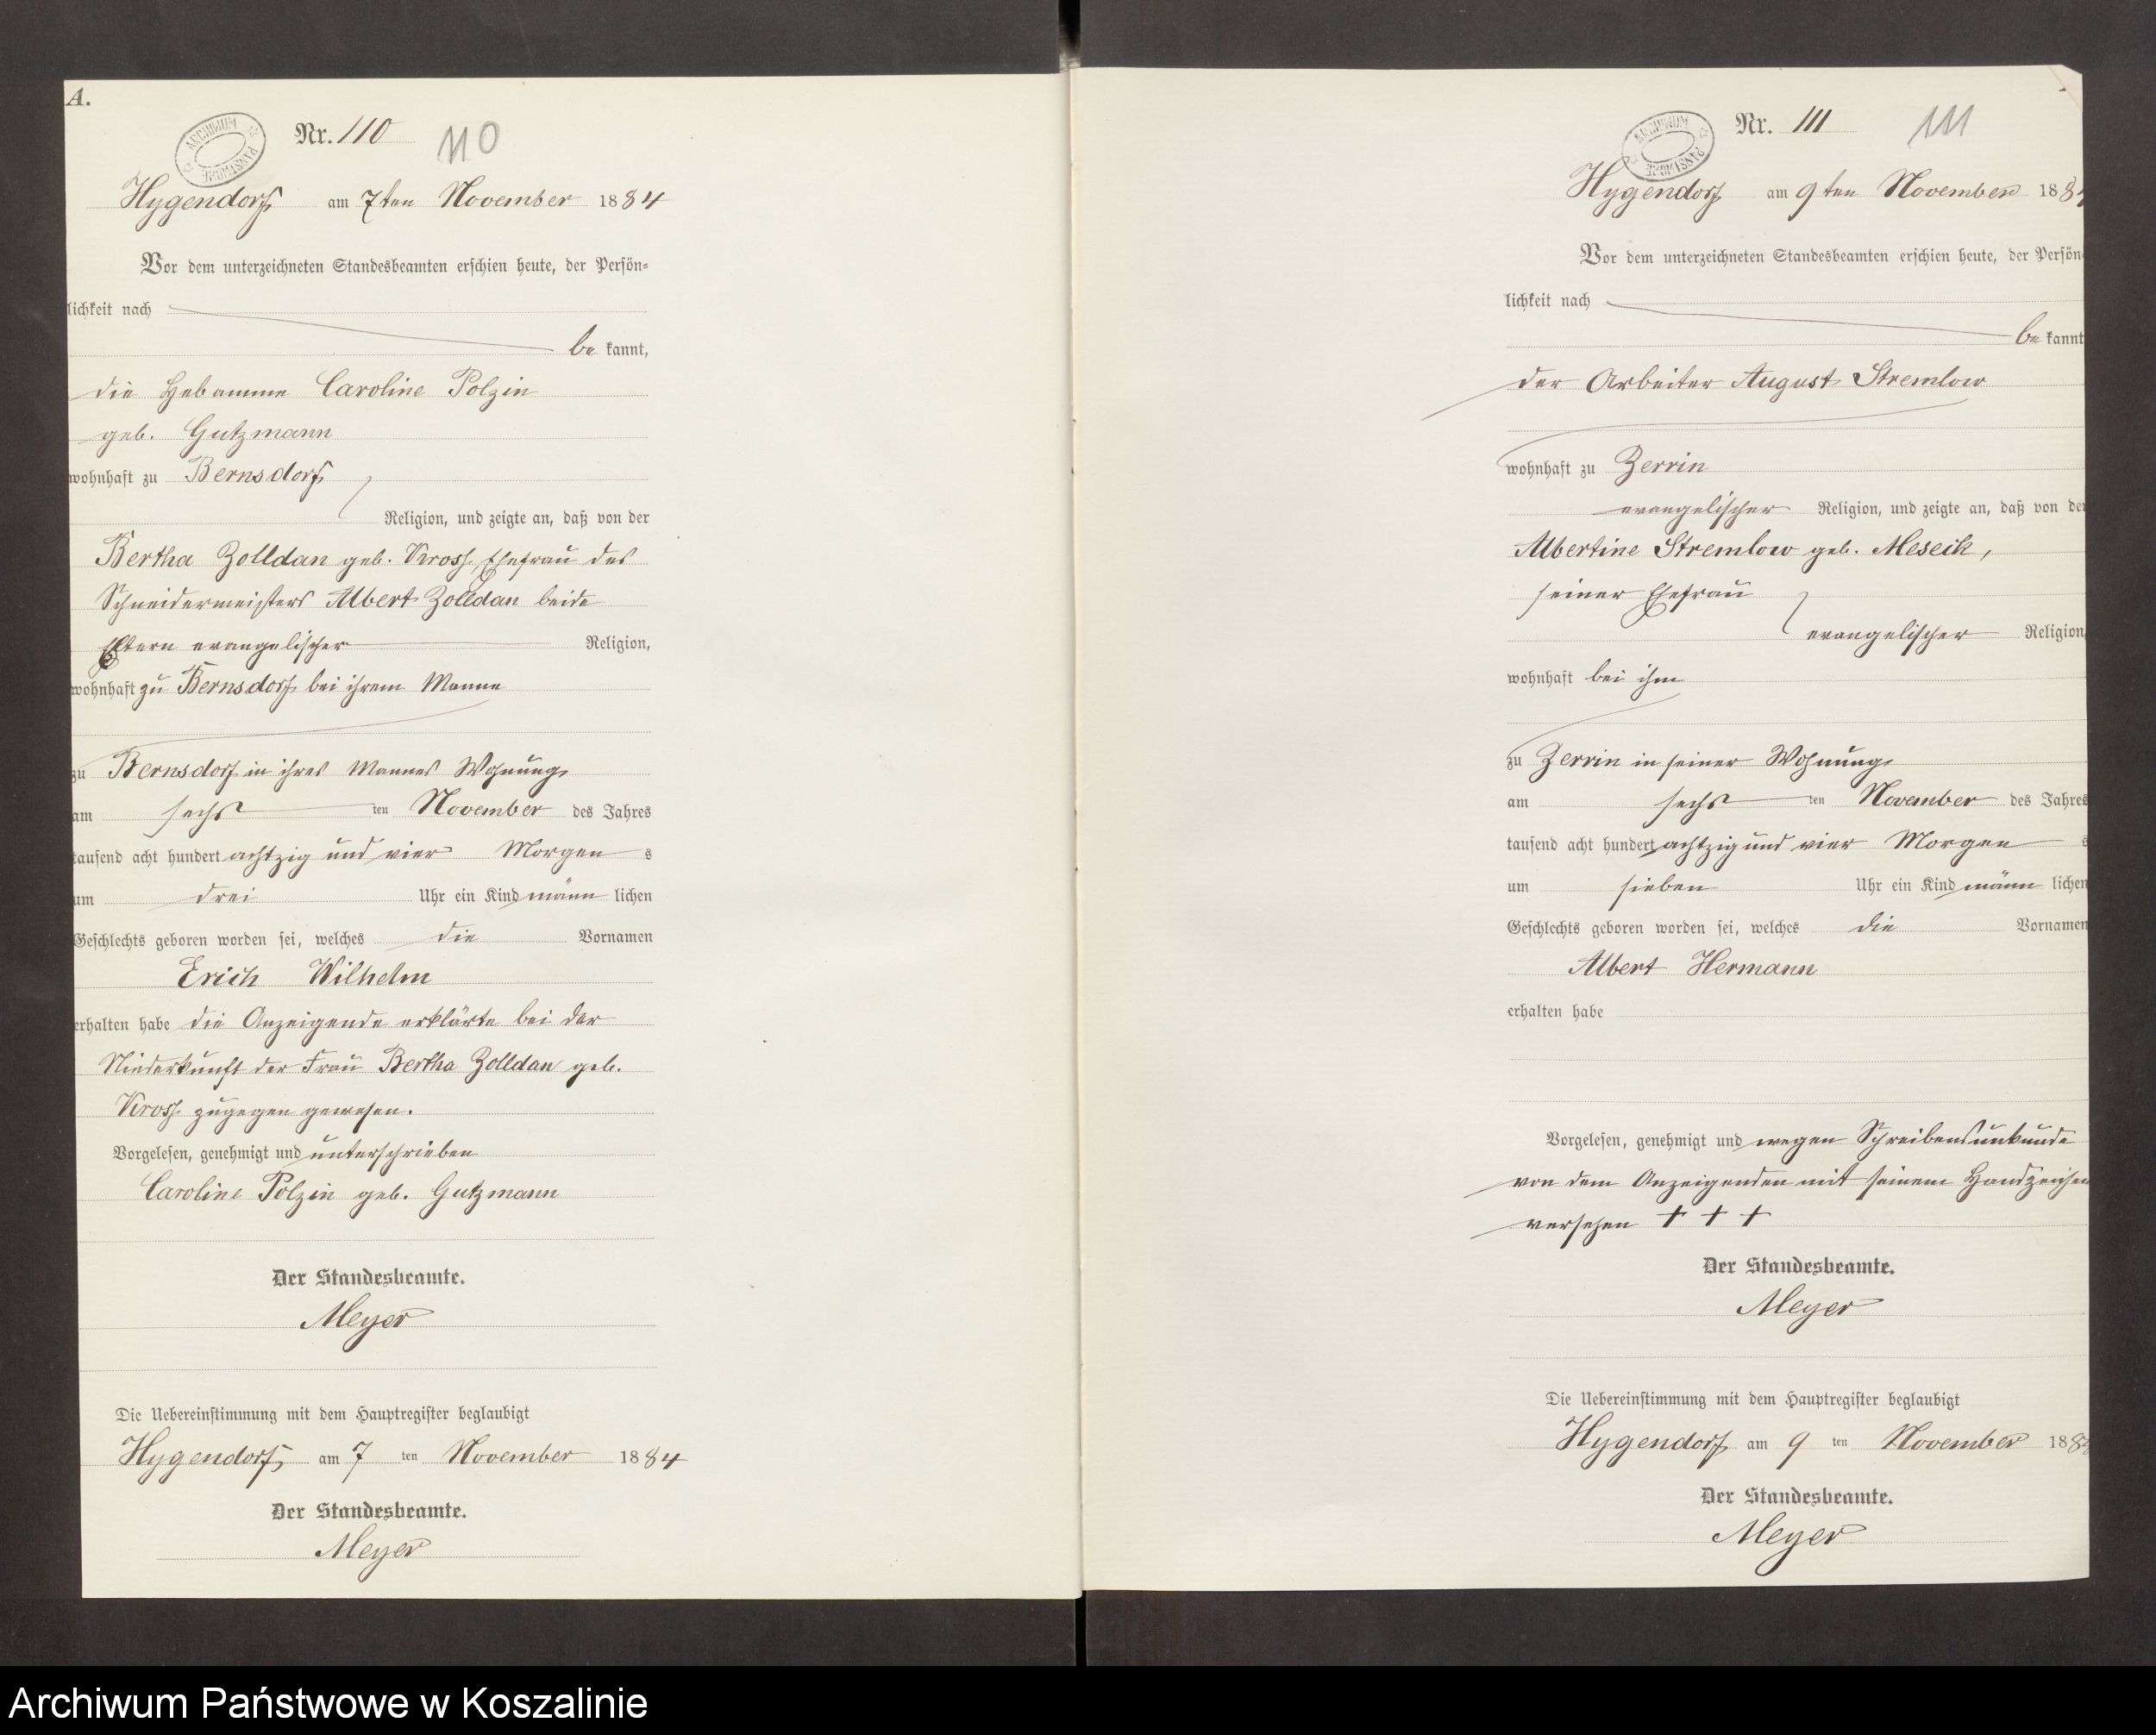 A.
ARCHIWUM PAŃSTWOWE
Nr. 110 110
Hygendorf am 7ten November 1884
Vor dem unterzeichneten Standesbeamten erschien heute, der Persön-
lichkeit nach
be kannt,
die Hebamme Caroline Polzin
geb. Gutzmann
wohnhaft zu Bernsdorf
Religion, und zeigte an, daß von der
Bertha Zolldan geb. Kross, Ehefrau des
Schneidermeisters Albert Zolldan beide
Eltern evangelischer Religion,
wohnhaft zu Bernsdorf bei ihrem Manne
zu Bernsdorf in ihres Mannes Wohnung
am sechs ten November des Jahres
tausend acht hundert achtzig und vier Morgen s
um drei Uhr ein Kind männ lichen
Geschlechts geboren worden sei, welches die Vornamen
Erich Wilhelm
erhalten habe die Anzeigende erklärte bei der
Niederkunft der Frau Bertha Zolldan geb.
Kross zugegen gewesen.
Vorgelesen, genehmigt und unterschrieben
Caroline Polzin geb. Gutzmann
Der Standesbeamte.
Meyer
Die Uebereinstimmung mit dem Hauptregister beglaubigt
Hygendorf, am 7 ten November 1884
Der Standesbeamte.
Meyer
ARCHIWUM PAŃSTWOWE
Nr. 111 111
Hygendorf am 9ten November 188
Vor dem unterzeichneten Standesbeamten erschien heute, der Persön
lichkeit nach
be kannt
der Arbeiter August Stremlow
wohnhaft zu Zerrin
evangelischer Religion, und zeigte an, daß von der
Albertine Stremlow geb. Meseck,
seiner Ehefrau
evangelischer Religion,
wohnhaft bei ihm
zu Zerrin in seiner Wohnung
am sechs ten November des Jahres
tausend acht hundert achtzig und vier Morgen s
um sieben Uhr ein Kind männ lichen
Geschlechts geboren worden sei, welches die Vornamen
Albert Hermann
erhalten habe
Vorgelesen, genehmigt und wegen Schreibensunkunde
von dem Anzeigenden mit seinem Handzeichen
versehen + + +
Der Standesbeamte.
Meyer
Die Uebereinstimmung mit dem Hauptregister beglaubigt
Hygendorf am 9 ten November 188
Der Standesbeamte.
Meyer
Archiwum Państwowe w Koszalinie